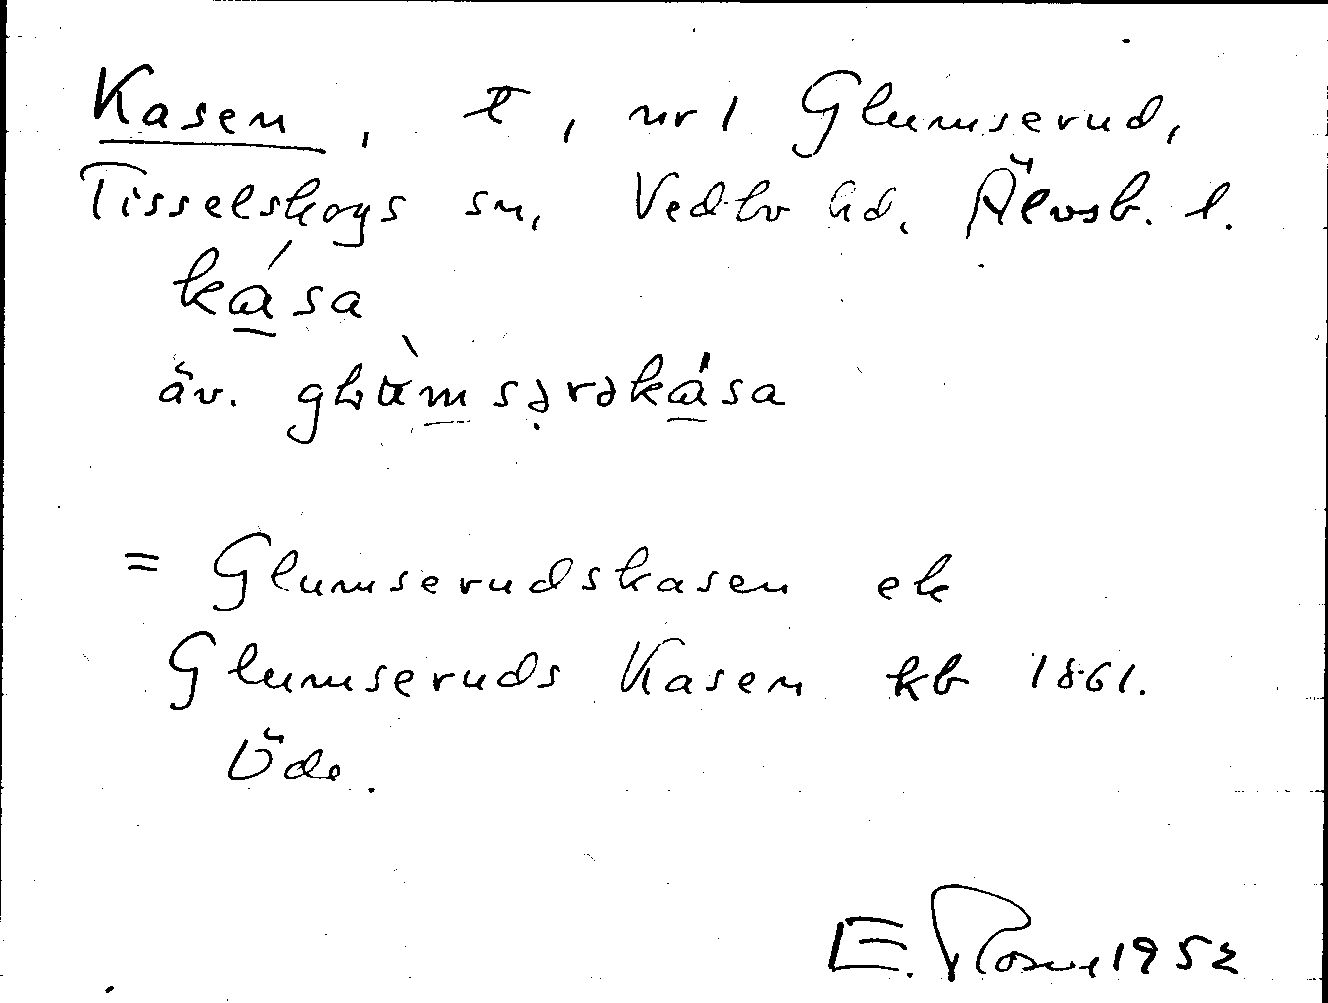 Kasen, t, nr 1 Glumserud,
Tisselskogs sn, Vedbo hd. Älvsb. l.
ká̱sa
äv. glùmsərəká̱sa
= Glumserudskasen el
Glumseruds Kasen kb 1861.
Öde.
E. Rosell 1952